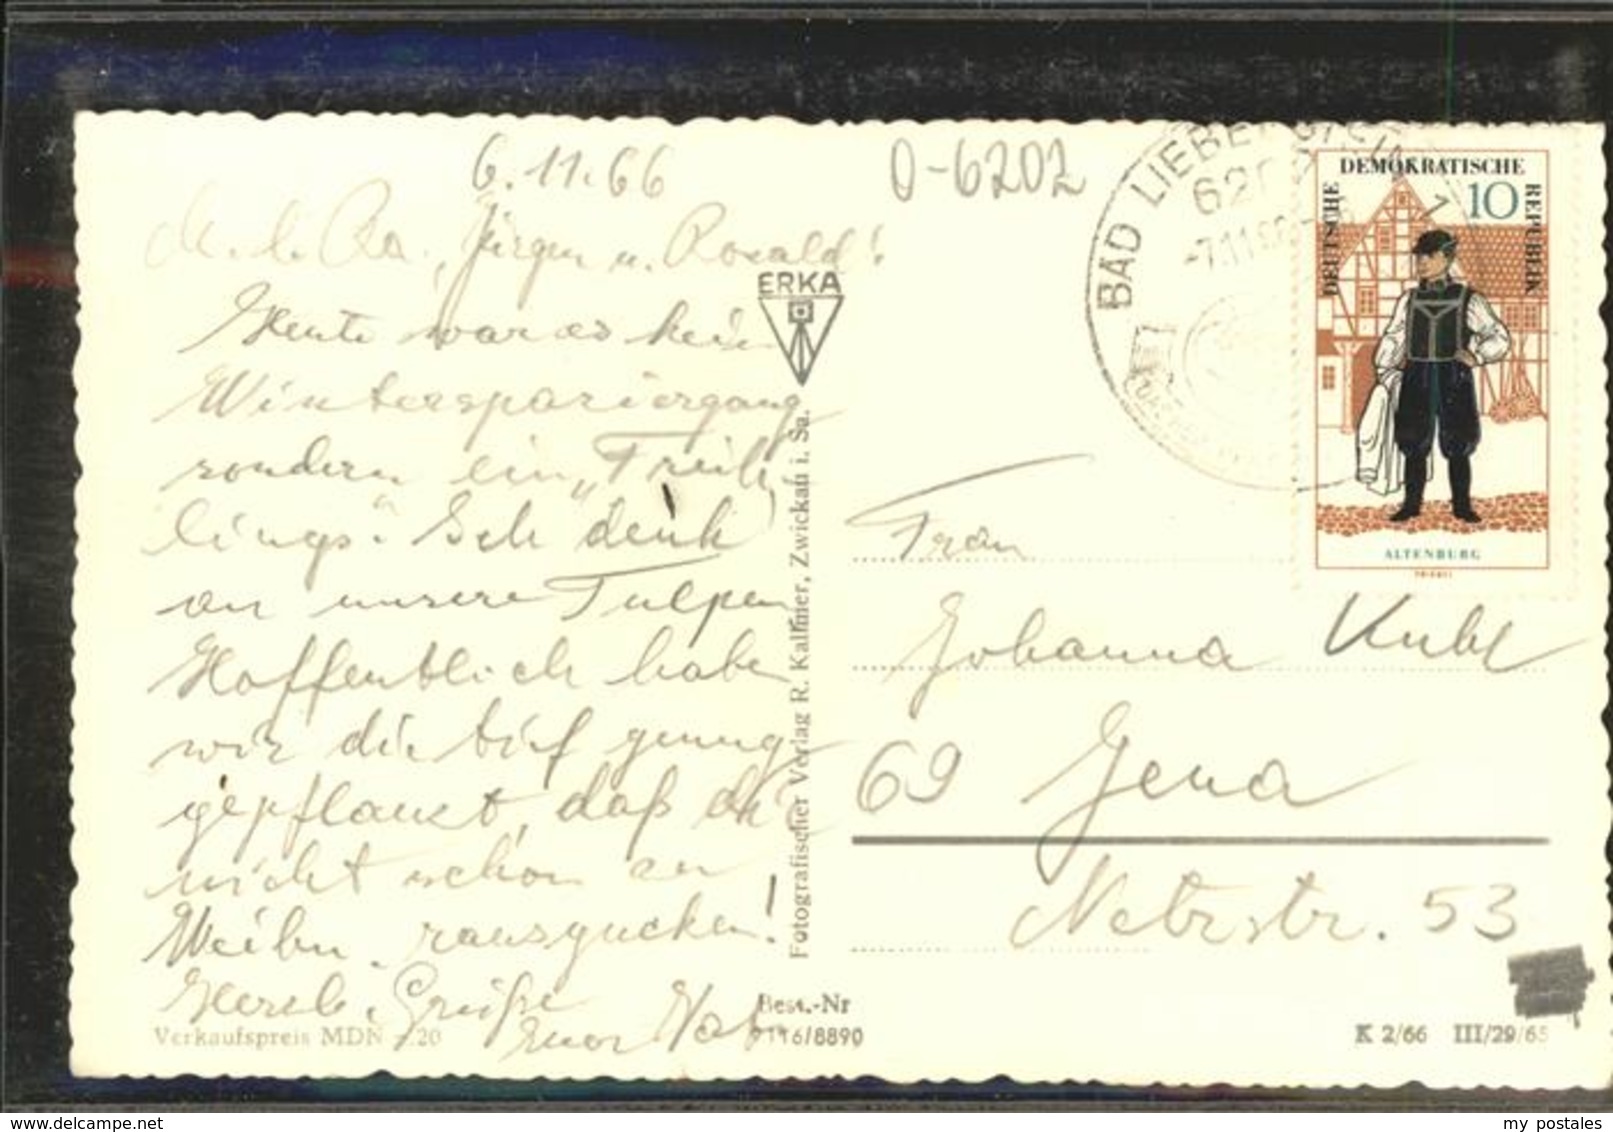 6.11.66
0-6202
M. l. Ro., Jürgen u. Ronald!
Heute war es kein
Winterspaziergang
sondern ein „Früh-
lings". Ich denk
an unsere Tulpen
Hoffentlich haben
wir die tief genug
gepflanzt, daß die
nicht schon zu
Weihn. rausgucken!
Herzl. Grüße
Euer
Verkaufspreis MDN -.20
ERKA
Fotografischer Verlag R. Kallmer, Zwickau i. Sa.
Best.-Nr
9116/8890
BAD LIEBENSTEIN
620
-7.11.66
DEUTSCHE
DEMOKRATISCHE
REPUBLIK
10
ALTENBURG
Frau
Johanna
69 Jena
Netzstr. 53
K 2/66 III/29/65
my postales
www.delcampe.net